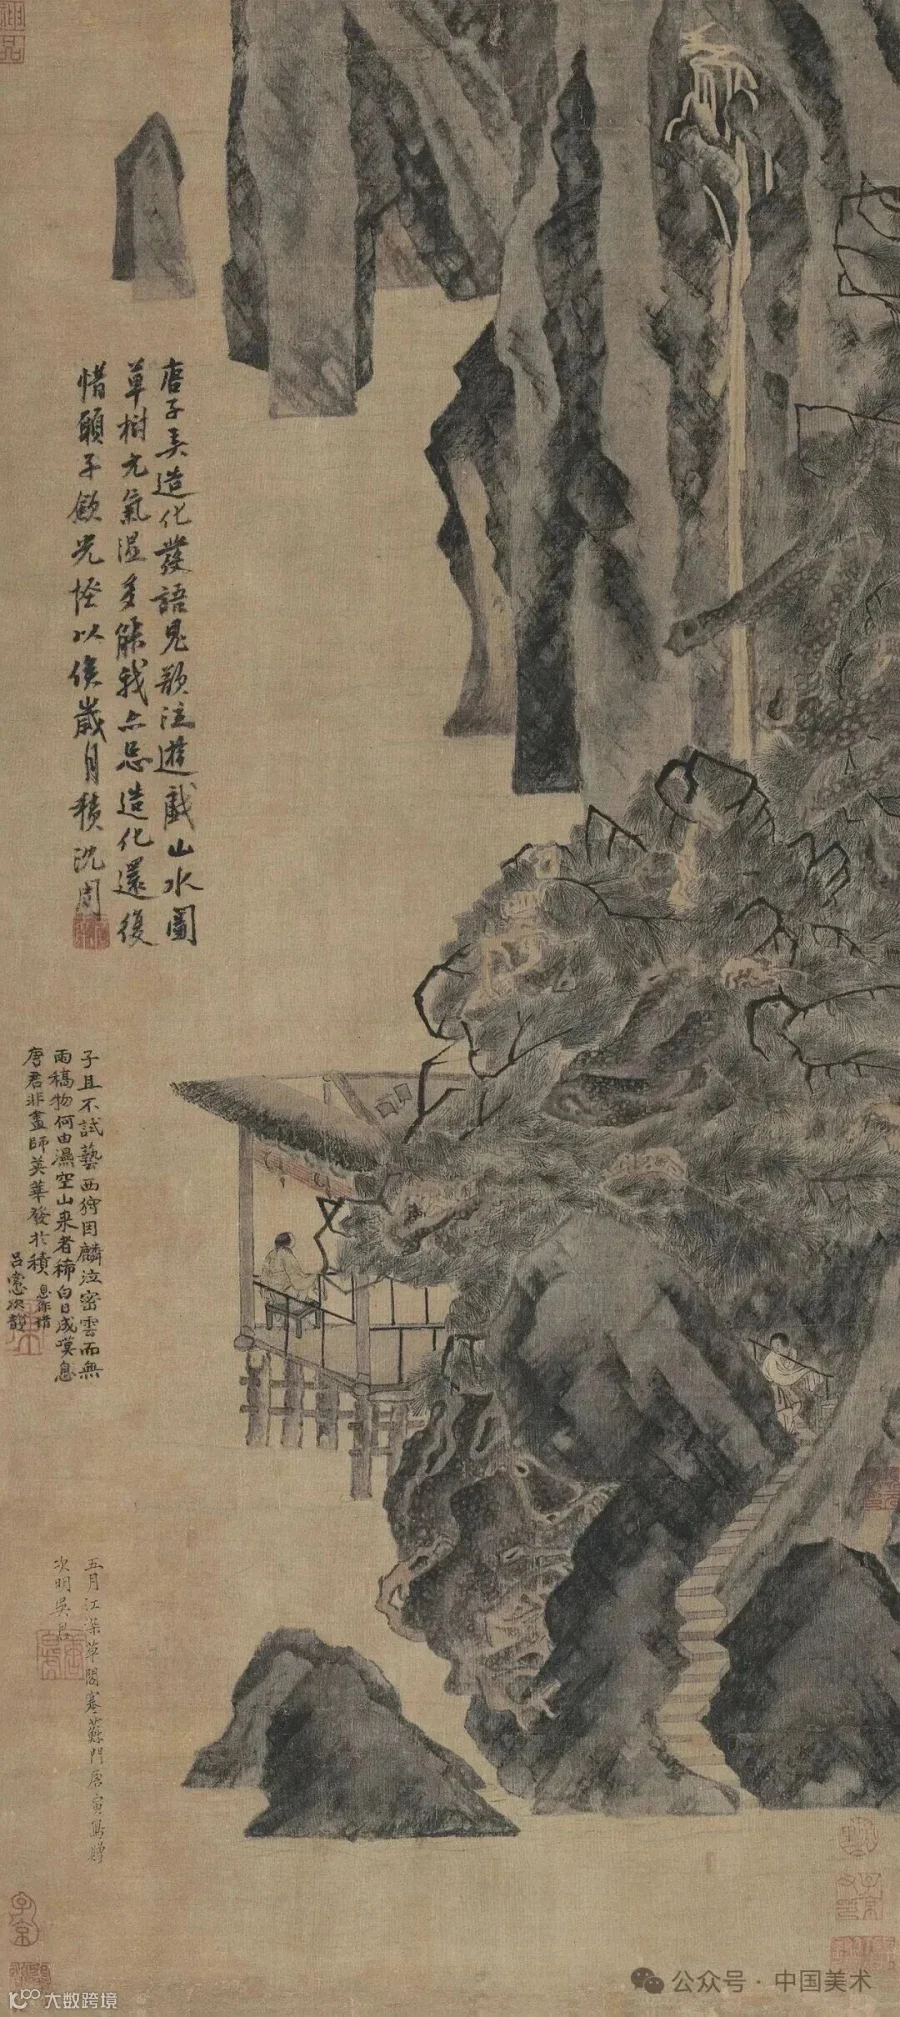 唐子弄造化發語鬼欲泣遊戲山水圖
草樹元氣濕多能我亦忌造化還復
惜願子斂光怪以俟歲月積沈周
子且不試藝西狩因麟泣密雲而無
雨稿物何由濕空山来者稀白日成嘆息
唐君非畫師英華發於積
息作惜
吕㦂次韻
五月江深草閣寒蘇門唐寅爲
次明吳君
公众号·中国美术
大数跨境